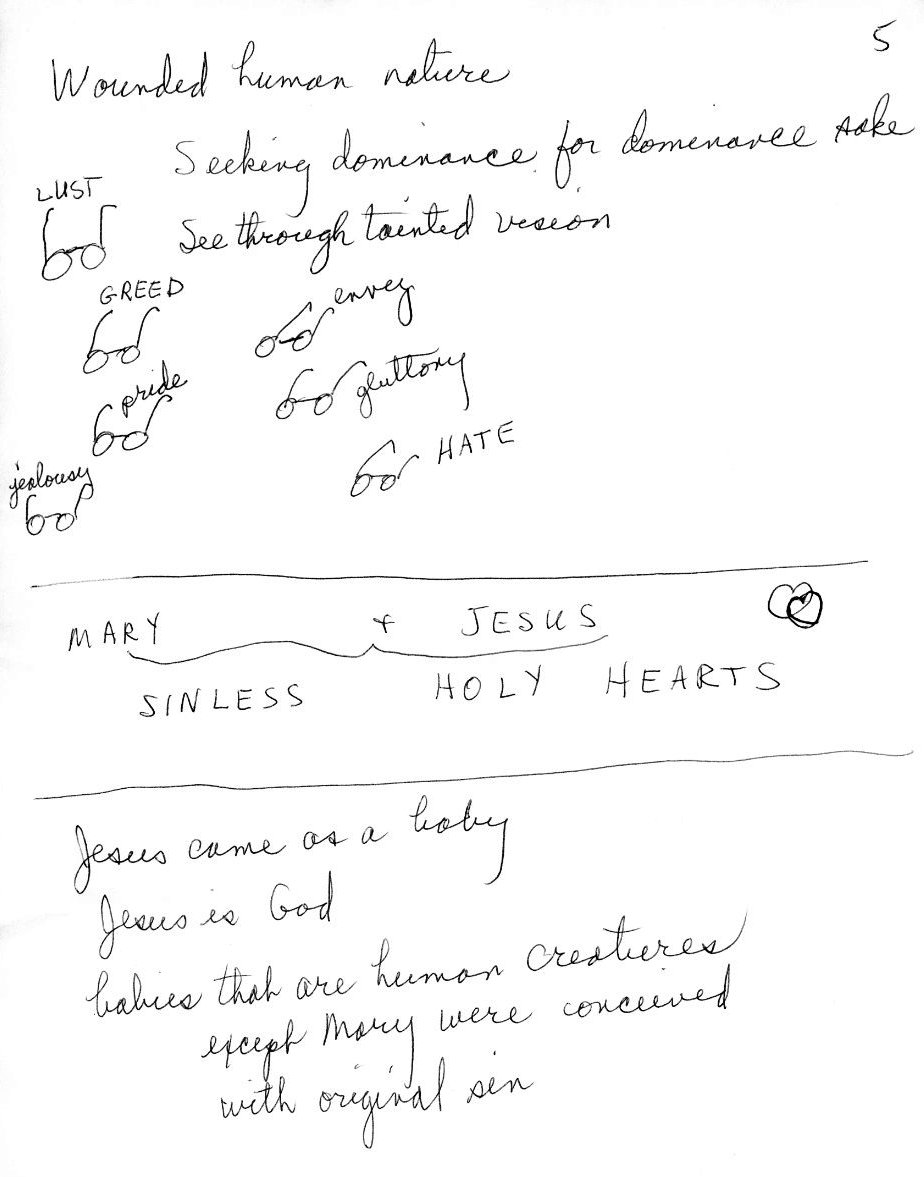 5
Wounded human nature
Seeking dominance for dominance sake
LUST
See through tainted vision
GREED
envey
pride
gluttony
HATE
jealousy
MARY + JESUS
SINLESS HOLY HEARTS
Jesus came as a baby
Jesus is God
babies that are human creatures
except Mary were conceived
with original sin